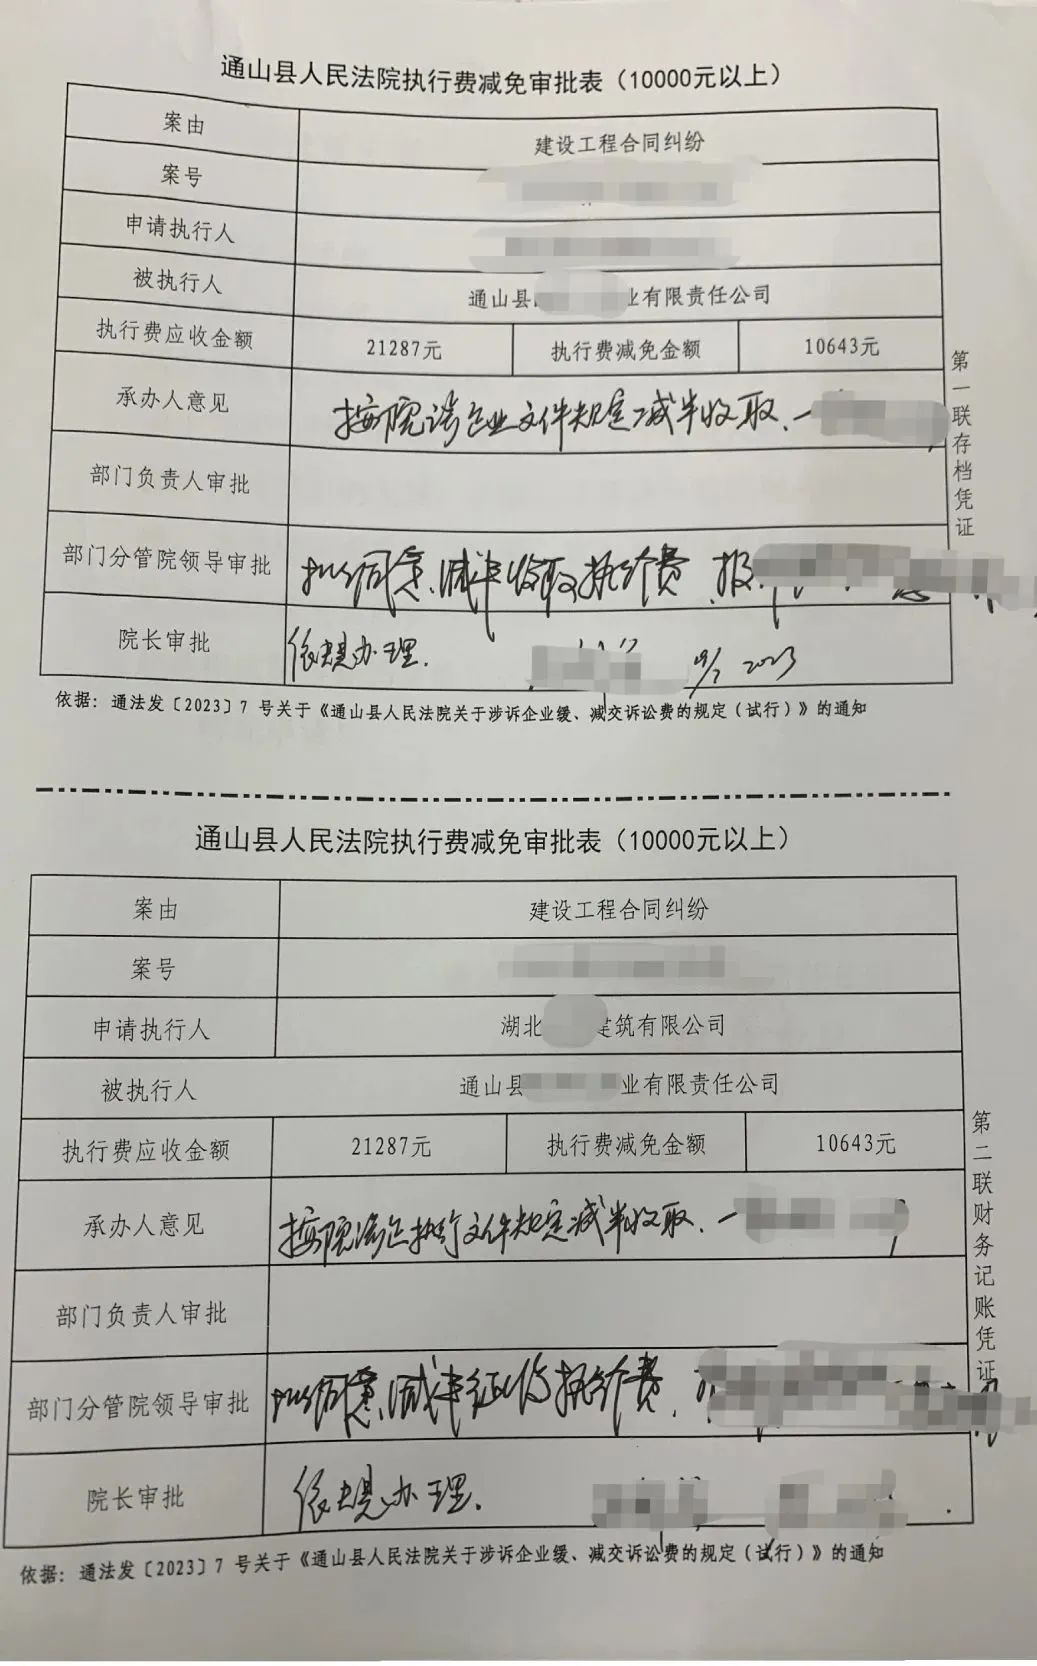 通山县人民法院执行费减免审批表（10000元以上）
案由 建设工程合同纠纷
案号
申请执行人
被执行人 通山县 业有限责任公司
执行费应收金额 21287元 执行费减免金额 10643元
承办人意见 按院涉企业文件规定减半收取、
部门负责人审批
部门分管院领导审批 拟同意减半收取执行费 报
院长审批 依规办理. 2023
第一联存档凭证
依据：通法发〔2023〕7 号关于《通山县人民法院关于涉诉企业缓、减交诉讼费的规定（试行）》的通知
通山县人民法院执行费减免审批表（10000元以上）
案由 建设工程合同纠纷
案号
申请执行人 湖北 建筑有限公司
被执行人 通山县 业有限责任公司
执行费应收金额 21287元 执行费减免金额 10643元
承办人意见 按院涉企执行文件规定减半收取、
部门负责人审批
部门分管院领导审批 拟同意减半征收执行费、
院长审批 依规办理.
第二联财务记账凭证
依据：通法发〔2023〕7 号关于《通山县人民法院关于涉诉企业缓、减交诉讼费的规定（试行）》的通知